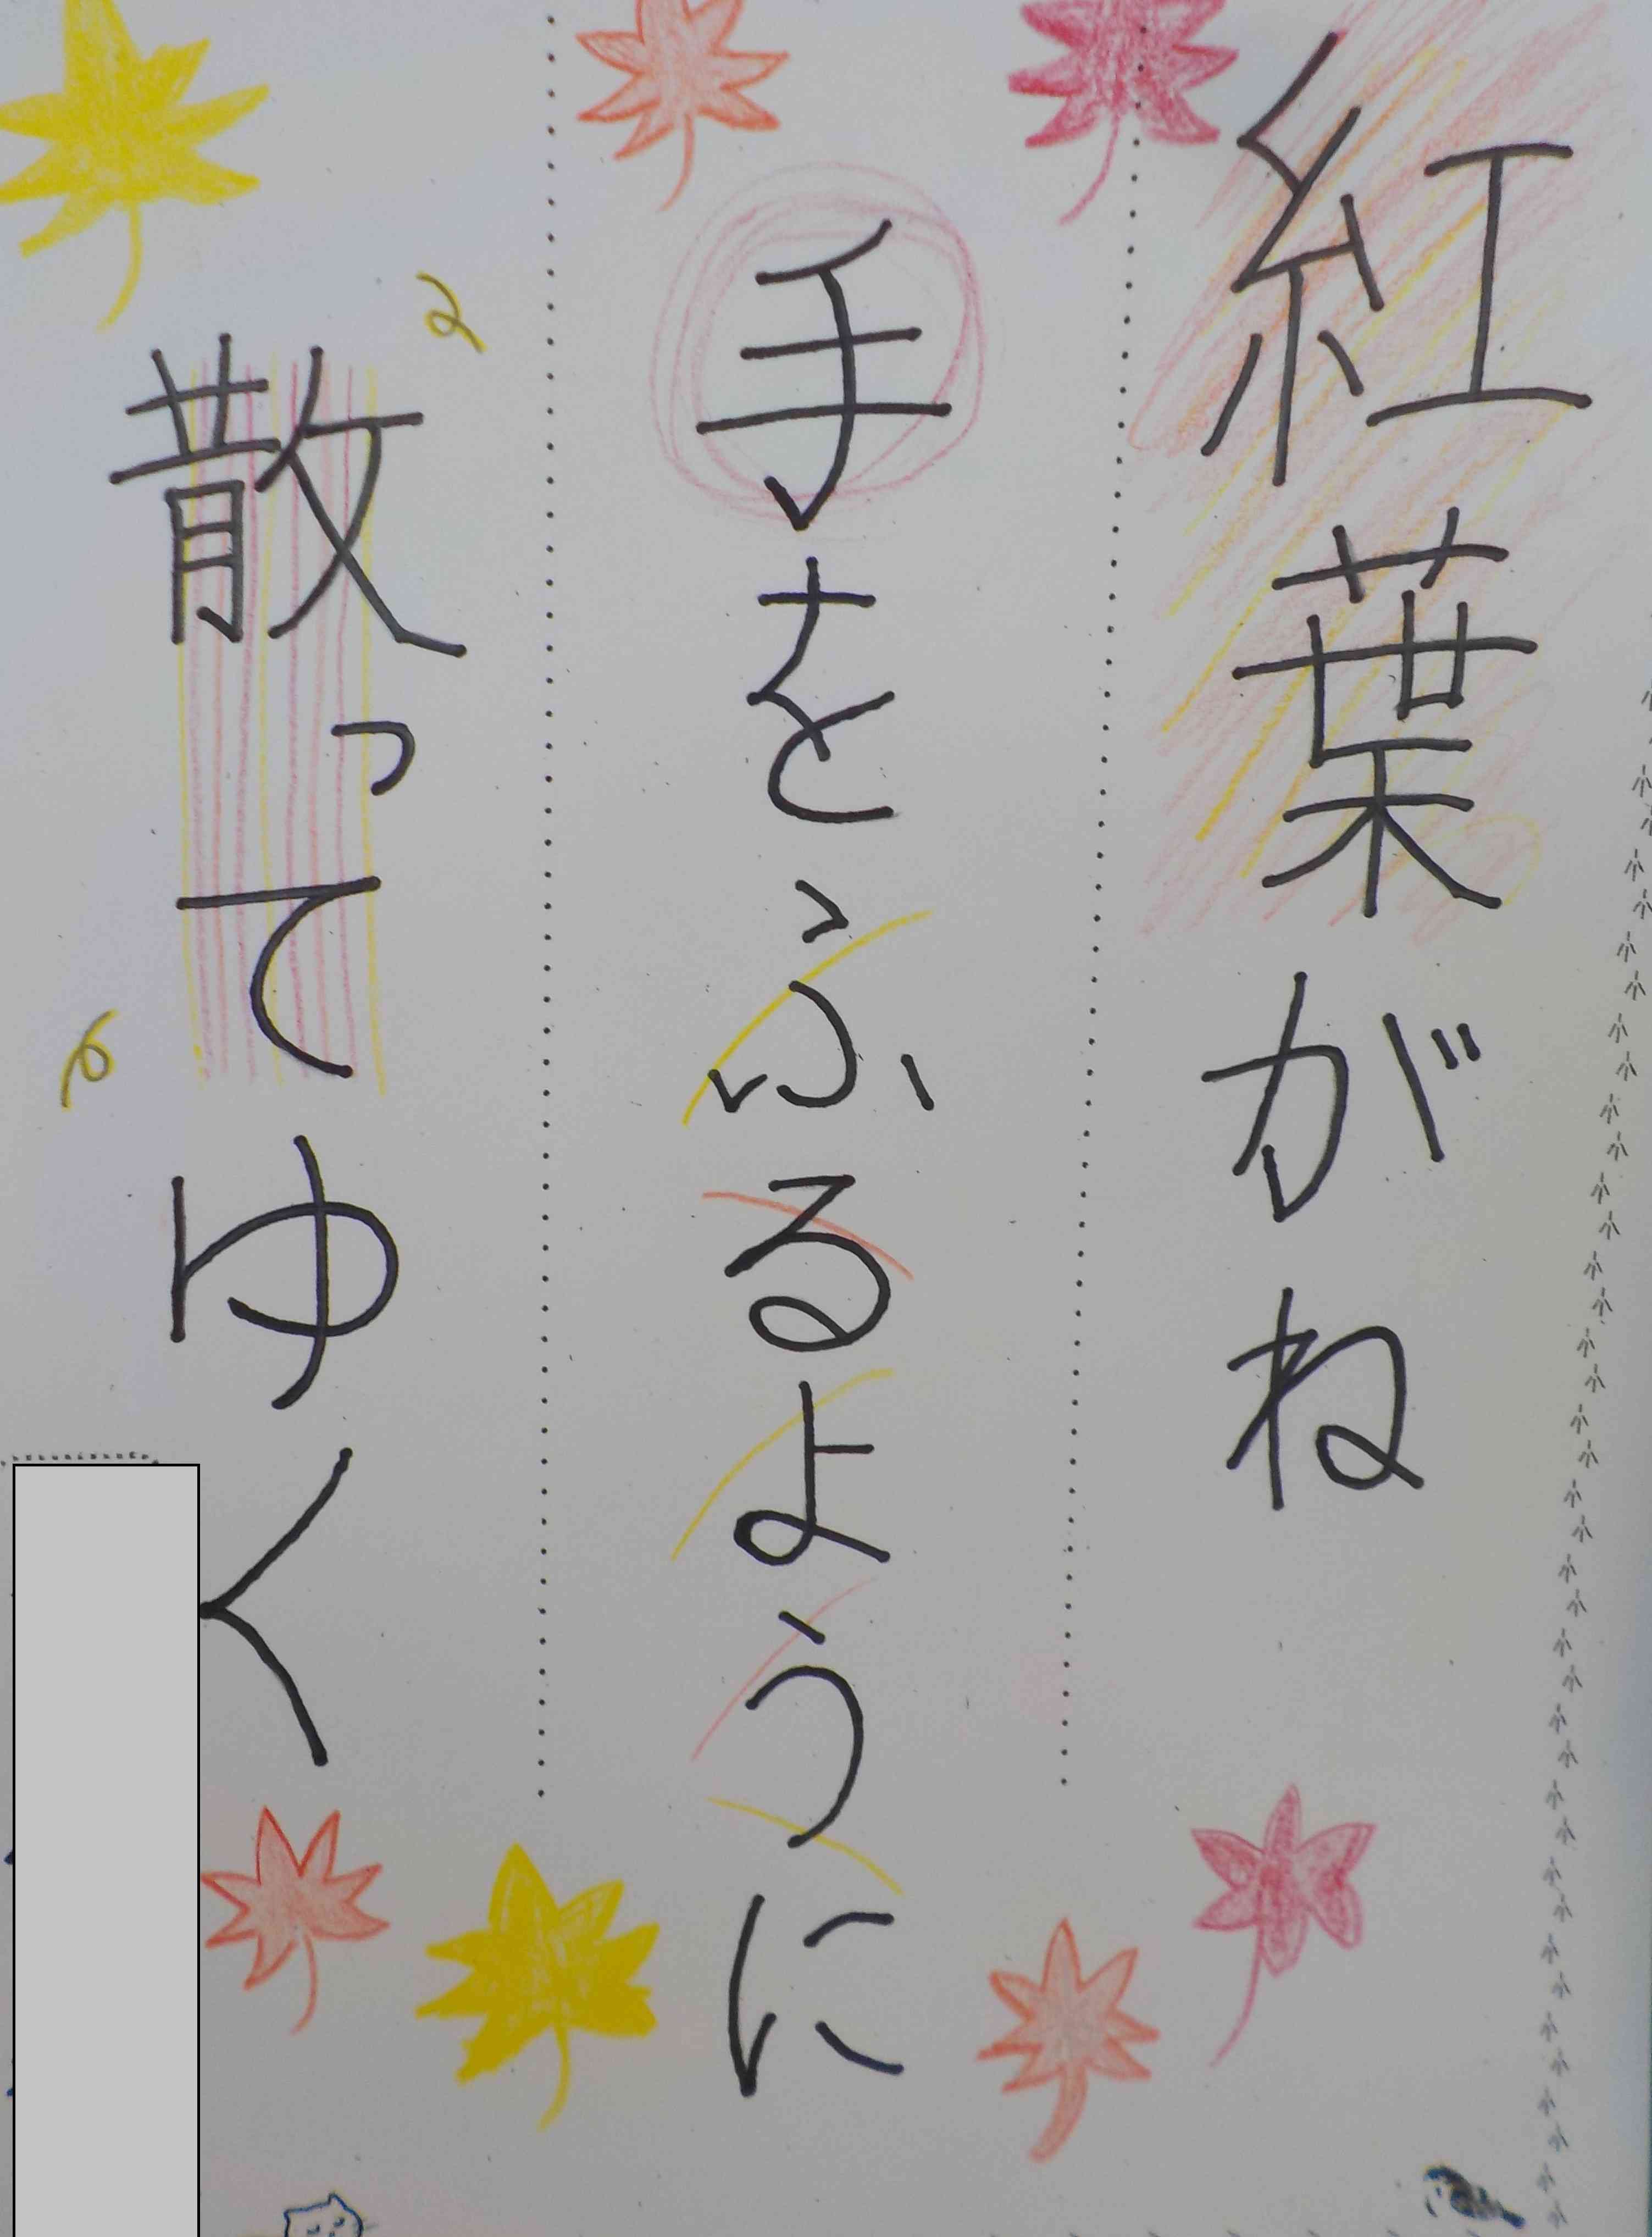 紅葉がね
手をふるように
散ってゆく